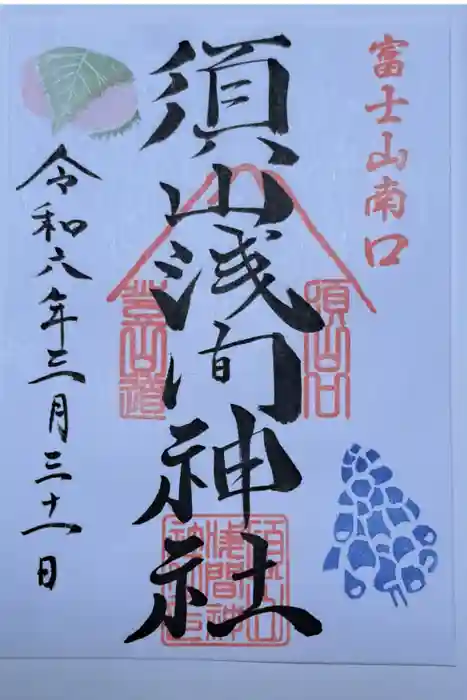 富士山南口
須山浅間神社
須山口
登山道
須山浅間神社
令和六年三月三十一日